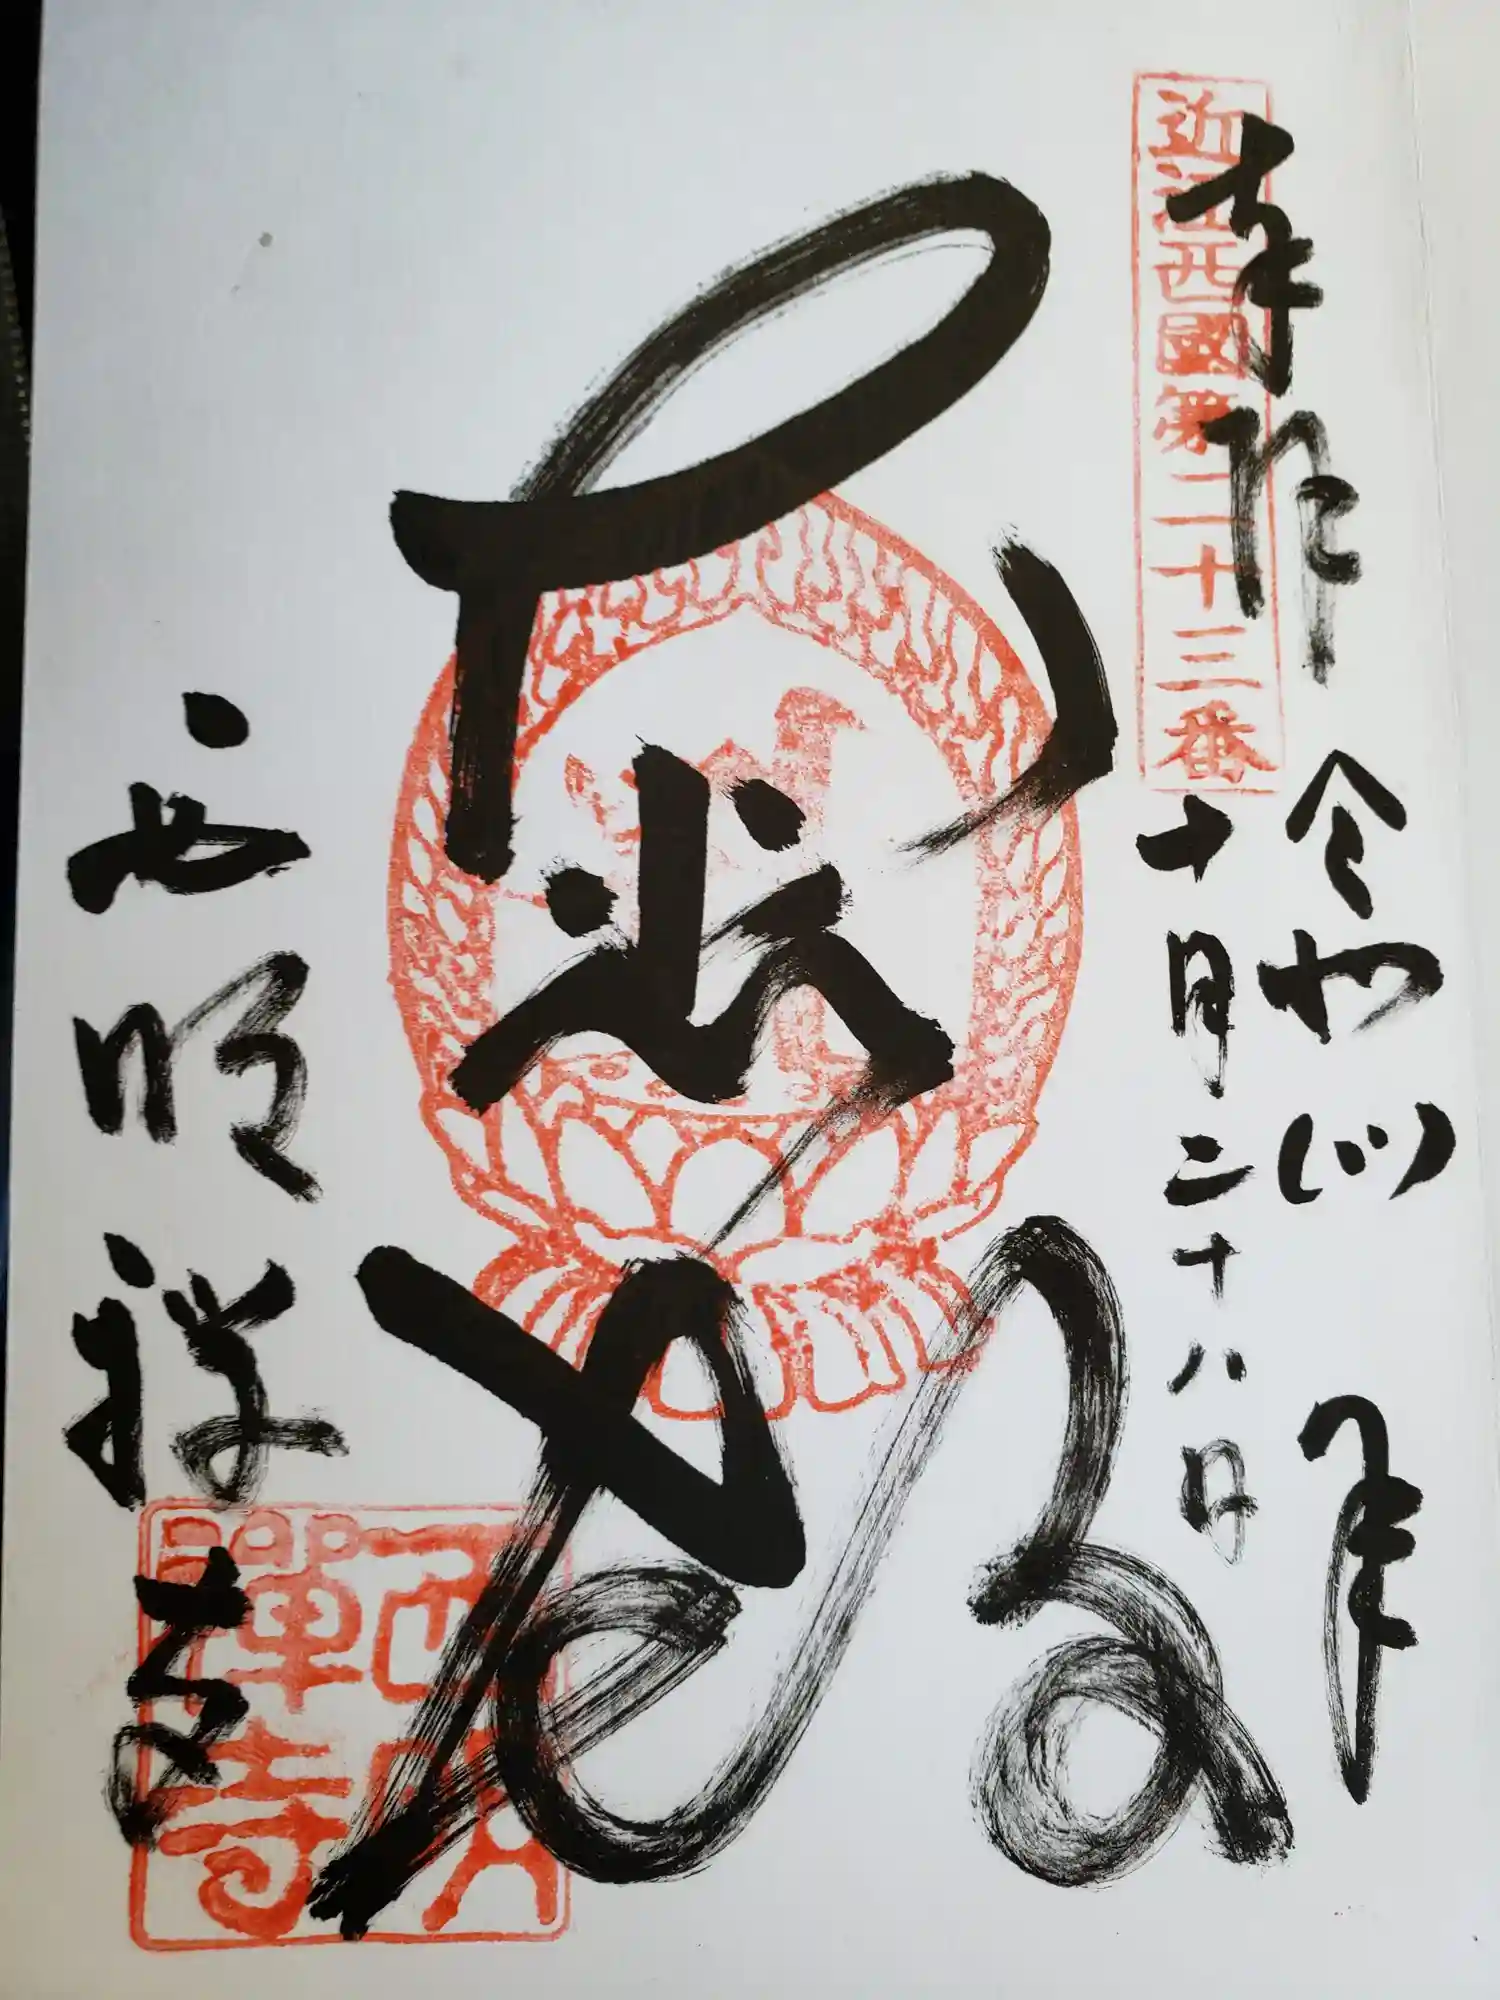 近江西國第二十三番
奉
拝
令和四
十月二十八日
光
殿
西明禅寺
西明禪寺